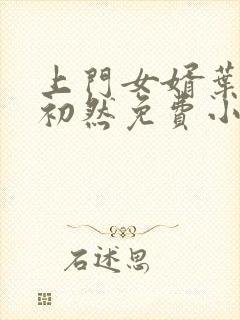 上門女婿葉
初然免費小
石述思